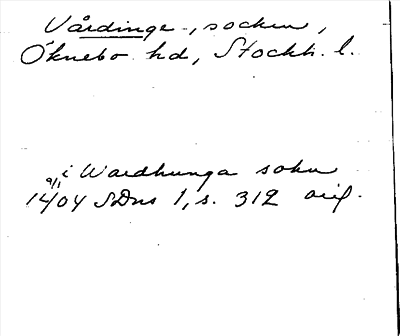 Vårdinge, socken,
Öknebo hd, Stockh. l.
i Wardhunga sokn
9/1 1404 SDns 1, s. 312 orig.